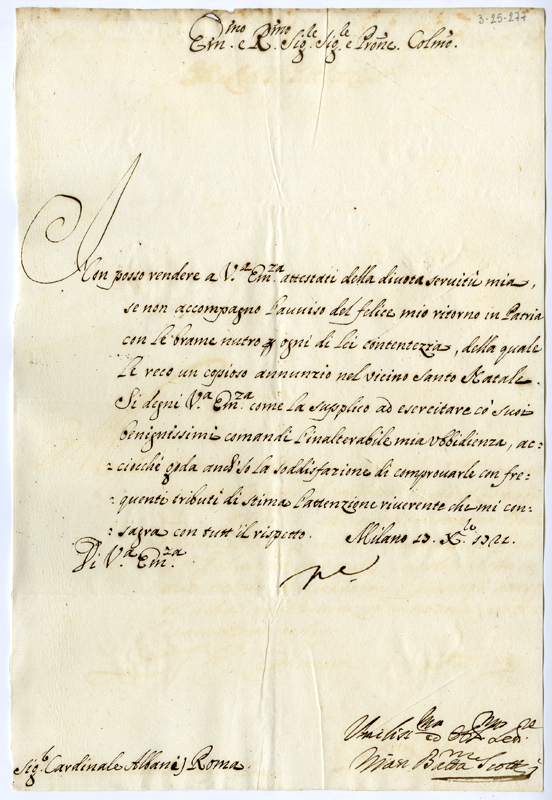 3-25-277
Em.mo e R.mo Sig.le Sig.le e Prõne. Colmo.
Non posso rendere a V.a Em.za attestati della divota servitù mia,
se non accompagno l'avviso del felice mio ritorno in Patria
con le brame nutro ogni di lei contentezza, della quale
le reco un copioso annunzio nel vicino Santo Natale.
Si degni V.a Em.za come la supplico ad esercitare co' suoi
benignissimi comandi l'inalterabile mia ubbidienza, ac=
=ciocchè goda anch'io la soddisfazione di comprovarle con fre=
=quenti tributi di stima l'attenzione riverente che mi con=
=sagra con tutt'il rispetto. Milano 13. X.le 1721.
Di V.a Em.za
Sig.r Cardinale Albani) Roma.
Batta Scotti